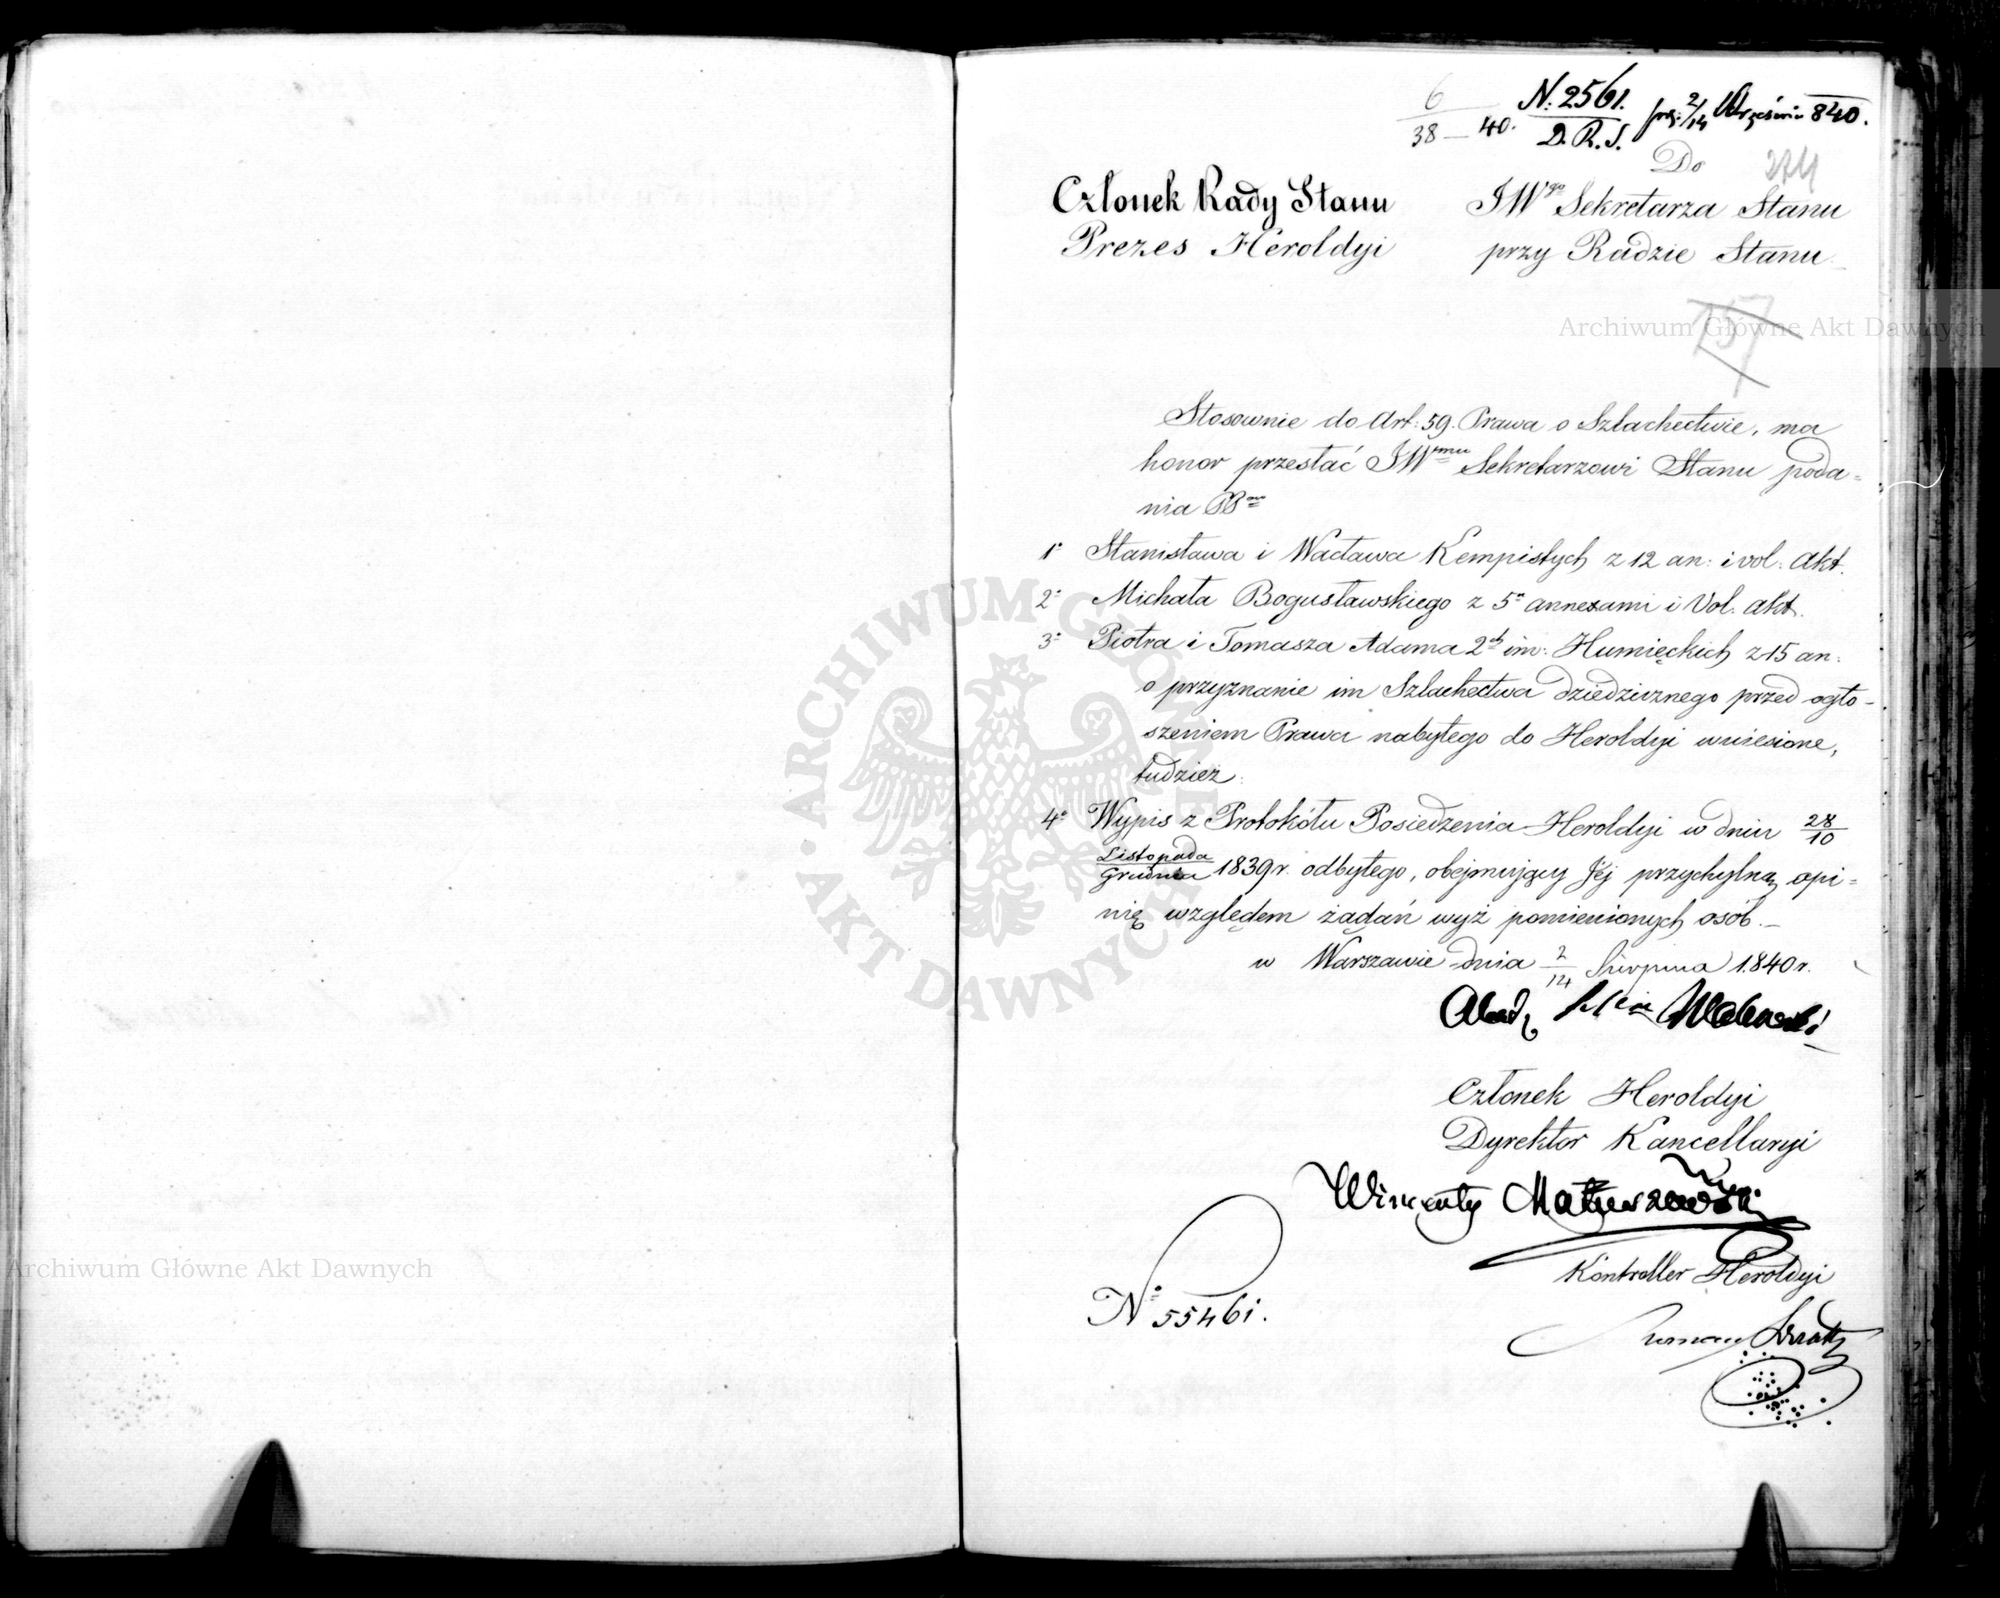 6
38 — 40.
N: 2561.
D. R. S.
prez: 2/14 Września 840.
Do
274
Członek Rady Stanu
Prezes Heroldyi
JWgo Sekretarza Stanu
przy Radzie Stanu
Stosownie do Art: 59. Prawa o Szlachectwie, ma
honor przesłać JWmu Sekretarzowi Stanu poda=
nia PP
1° Stanisława i Wacława Kempistych z 12 an: i vol: Akt.
2° Michała Bogusławskiego z 5 annexami i Vol. Akt.
3° Piotra i Tomasza Adama 2ch im: Humięckich z 15 an:
o przyznanie im Szlachectwa dziedzicznego przed ogło-
szeniem Prawa nabytego do Heroldyi wniesione,
tudzież:
4° Wypis z Protokółu Posiedzenia Heroldyi w dniu 28/10
Listopada/Grudnia 1839 r. odbytego, obejmujący Jéj przychylną opi=
nię względem żądań wyż pomienionych osób.—
w Warszawie dnia 2/14 Sierpnia 1840 r.
Członek Heroldyi
Dyrektor Kancellaryi
Wincenty Matuszewski
Kontroller Heroldyi
N° 55461.
Archiwum Główne Akt Dawnych
Archiwum Główne Akt Dawnych
ARCHIWUM GŁÓWNE AKT DAWNYCH